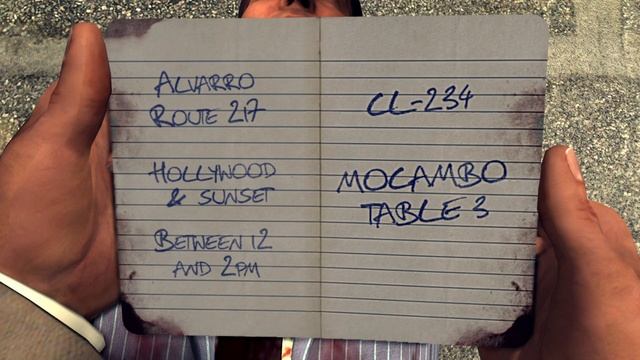 ALVARRO
ROUTE 217
HOLLYWOOD
& SUNSET
BETWEEN 12
AND 2PM
CL-234
MOCAMBO
TABLE 3